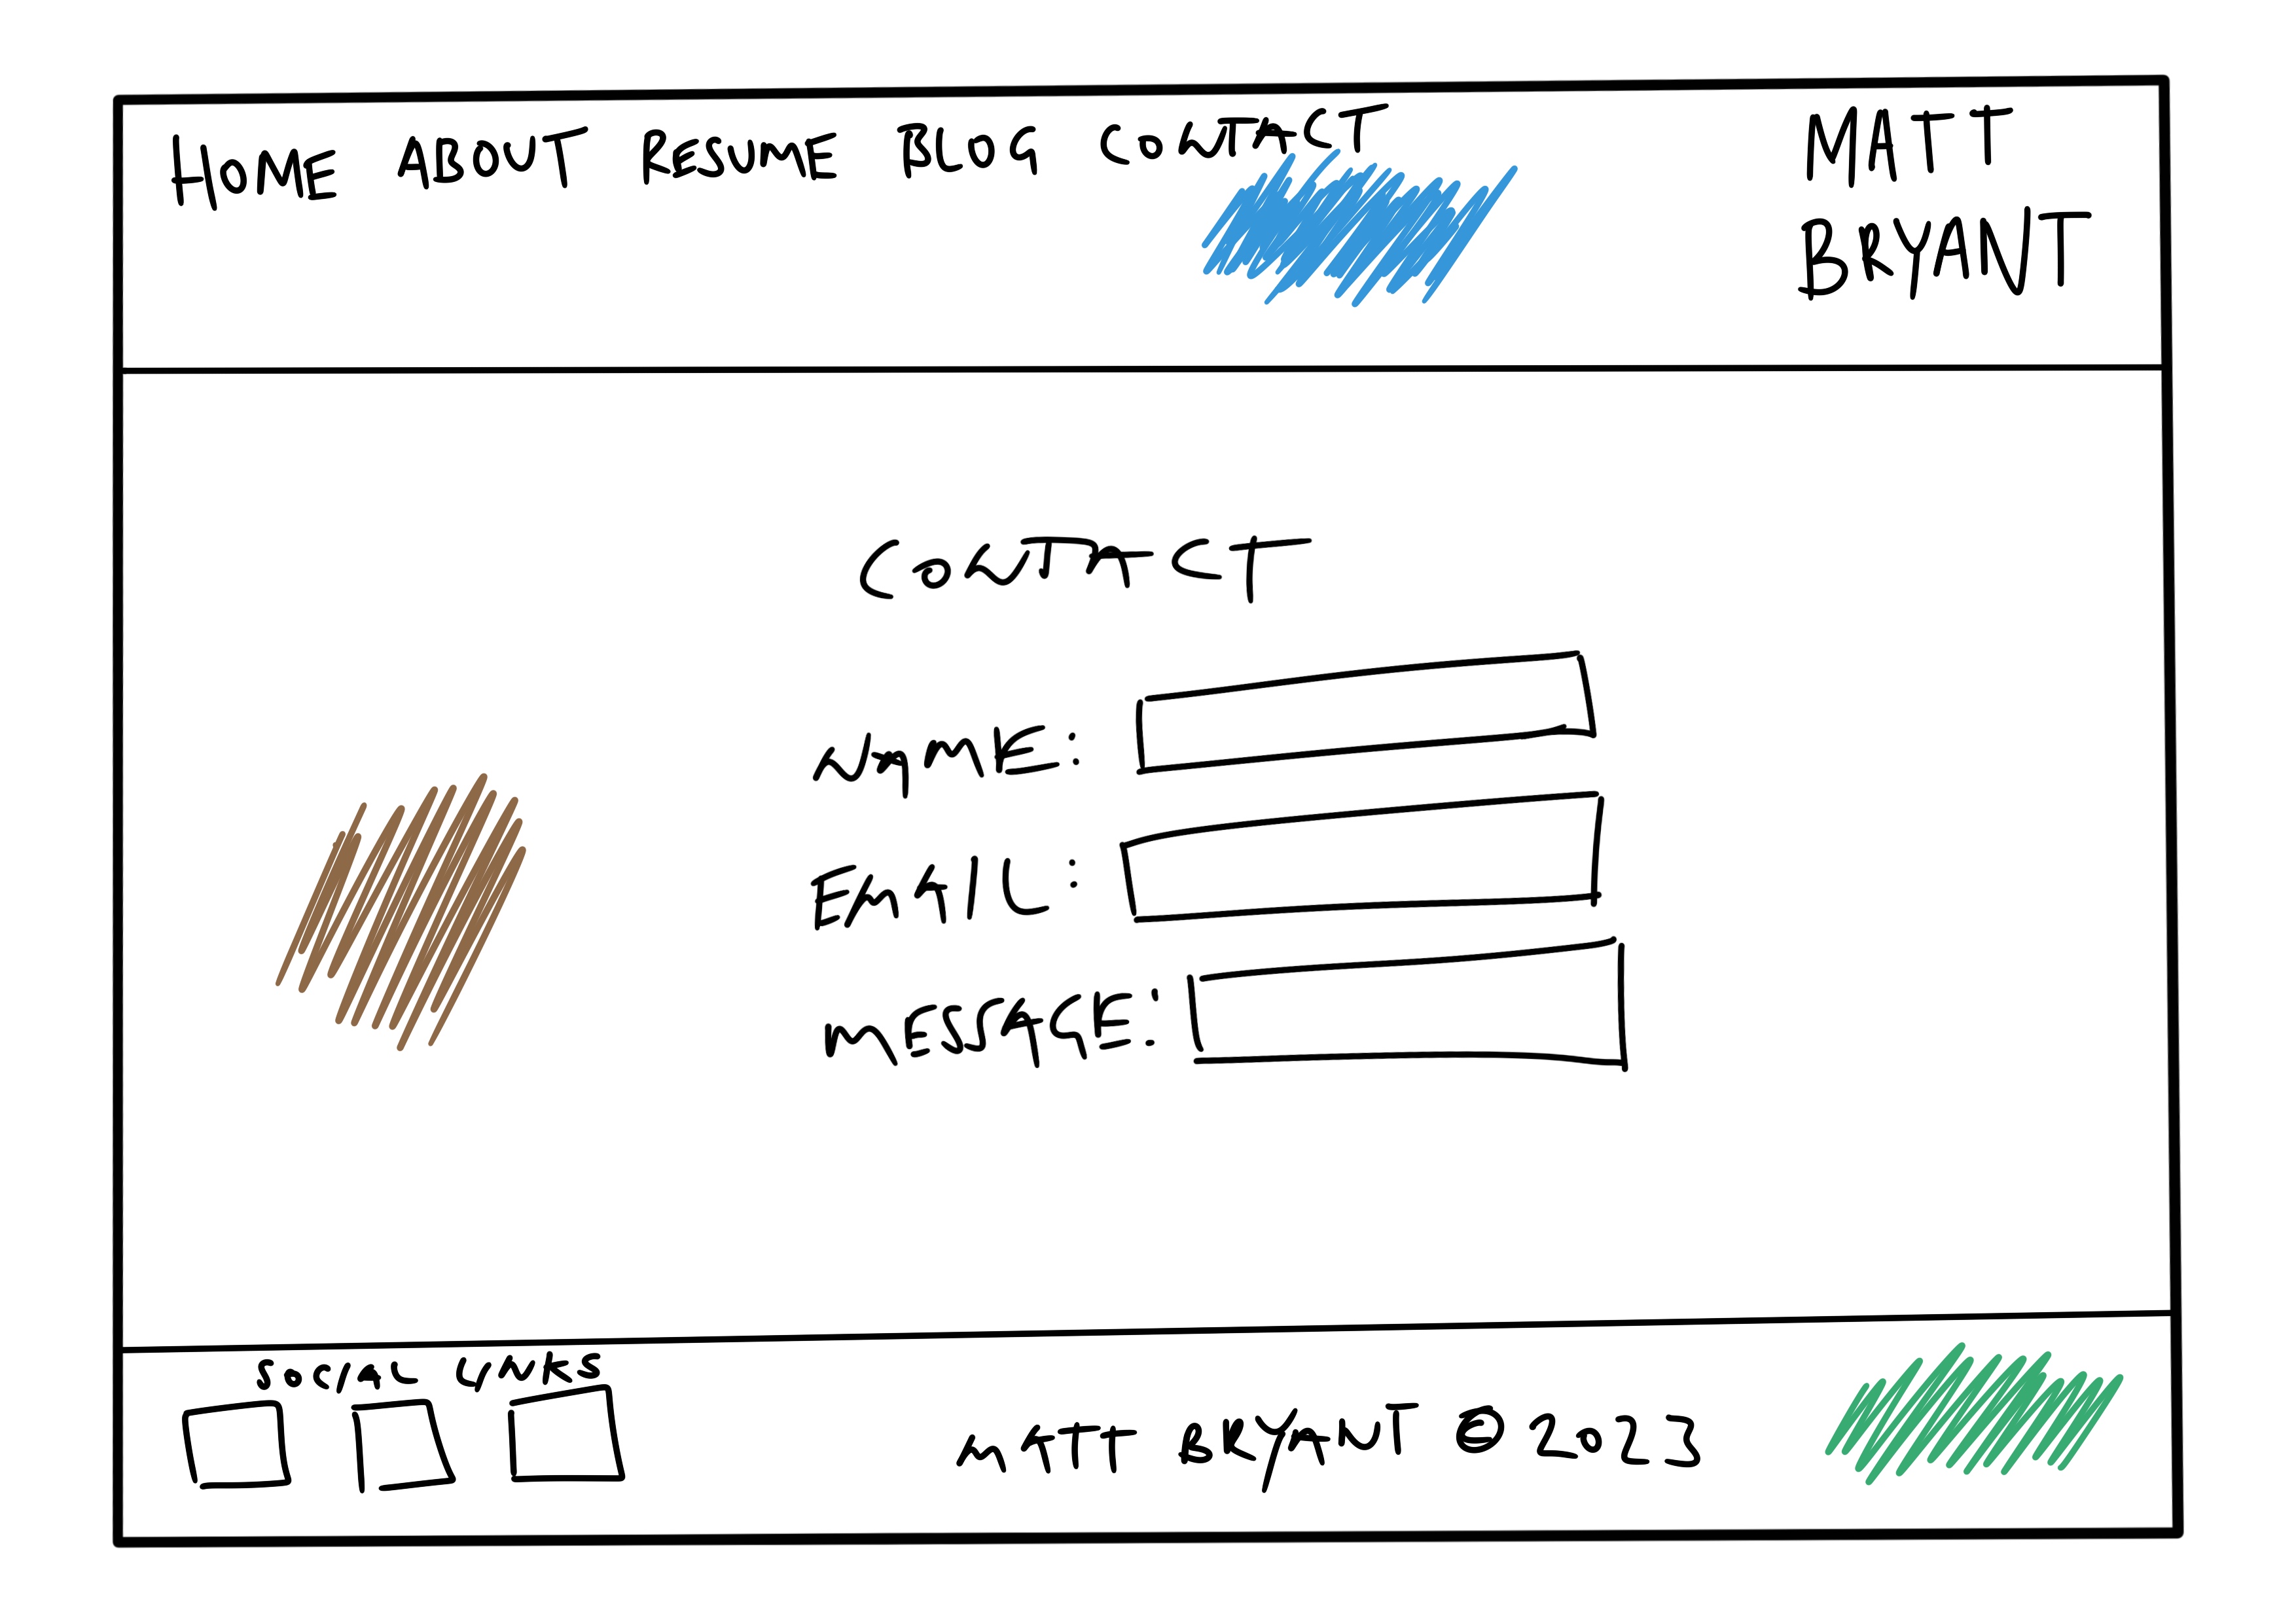 HOME ABOUT RESUME BLOG CONTACT
MATT
BRYANT
CONTACT
NAME:
EMAIL:
MESSAGE:
SOCIAL LINKS
MATT BRYANT © 2023